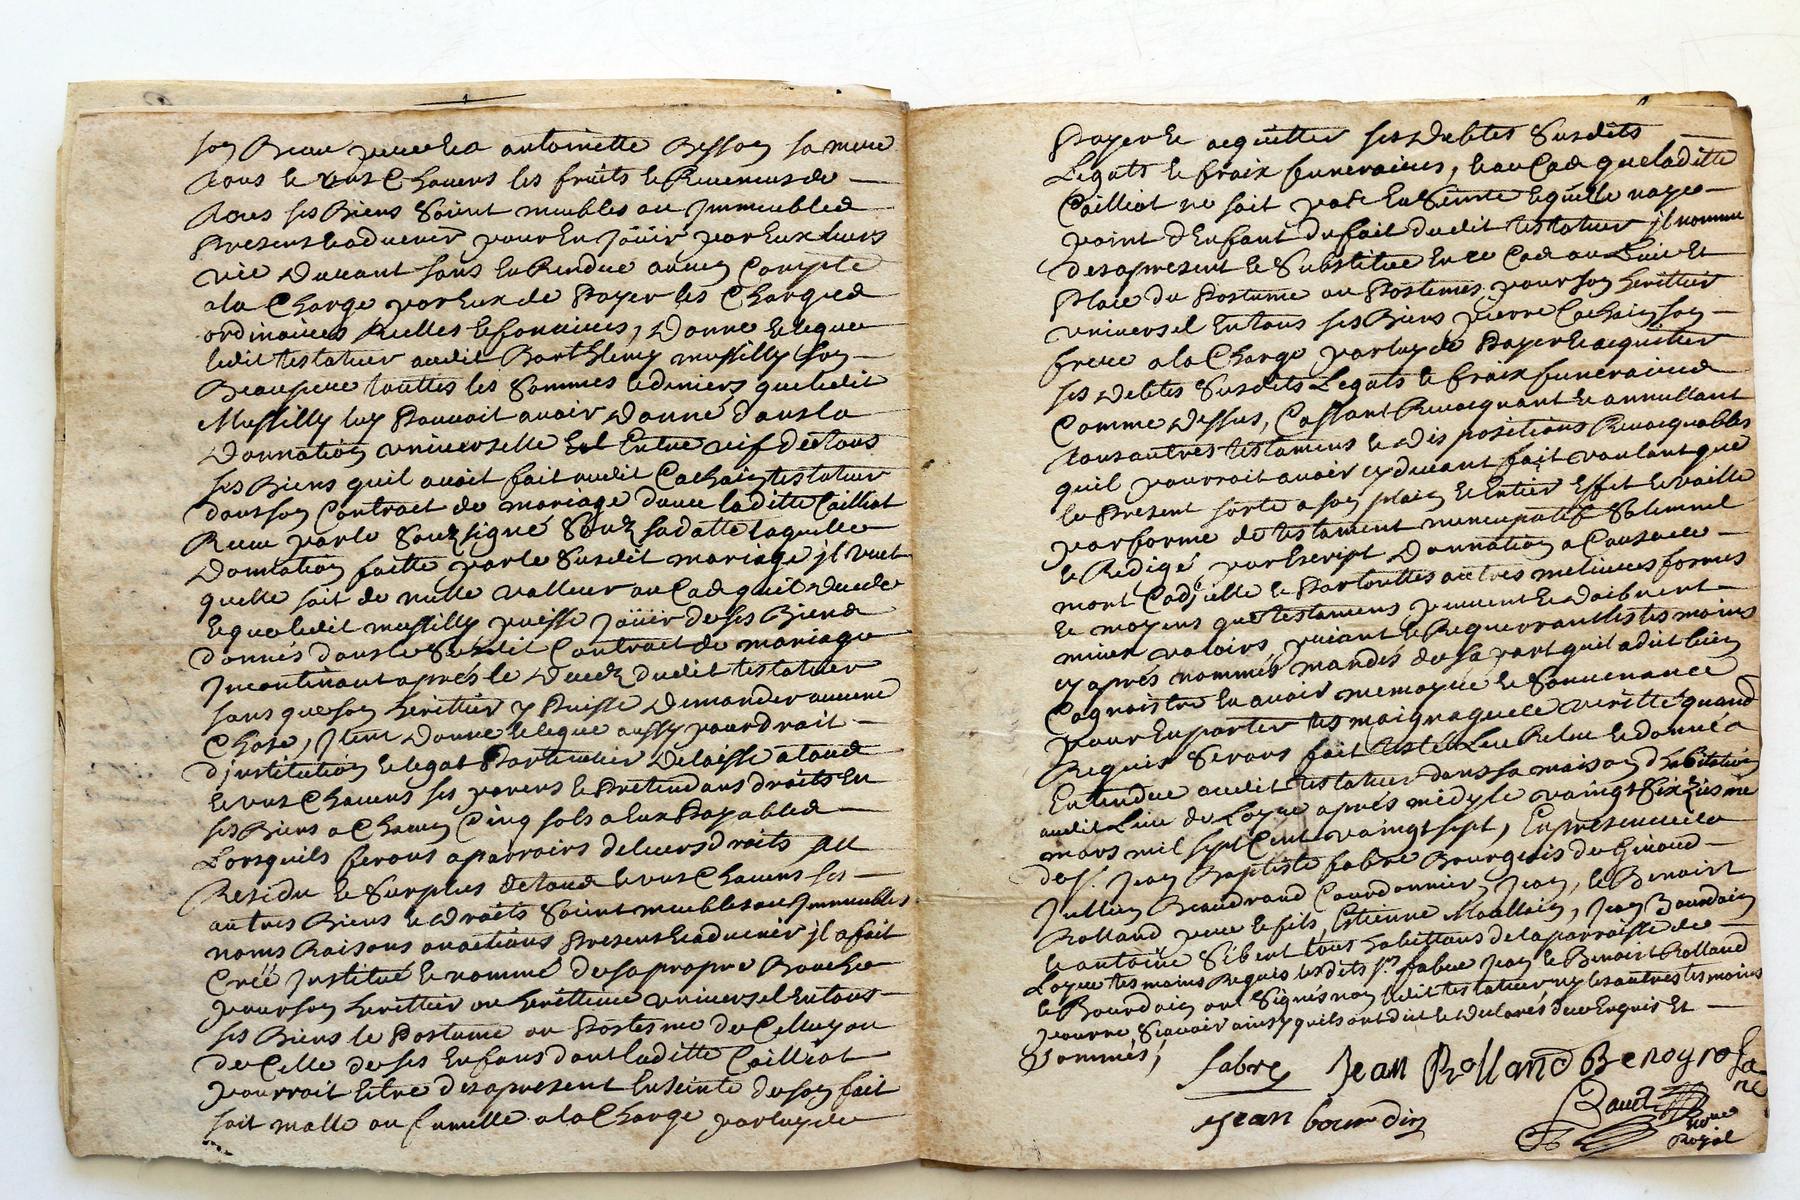 son Beau pere et a antoinette Besson sa mere
tous et uns Chacuns les fruits et Revenus de
tous ses Biens Soient meubles ou Jmmeubles
Present et advenir pour En joüir par Eux leurs
vie Durant sans En Rendre aucun Compte
a la Charge par Eux de Payer les Charges
ordinaires Reelles et foncieres, Donne et legue
ledit testateur audit Barthlemy mussilly son
Beaupere touttes les Sommes et deniers que ledit
Mussilly luy Pouvoit avoir Donné dans la
Donnation universelle Entre vif de tous
ses Biens quil avoit fait audit Cachain testateur
dans son Contract de mariage d'avec laditte Cailliot
Receu par le Soubsigné Soubz sa datte laquelle
Donnation faitte par le Susdit mariage jl veut
quelle soit de nulle valleur au Cas quil Decede
et que ledit mussilly puisse joüir de ses Biens
donnés dans le Susdit Contract de mariage
jncontinant aprés le Decedz dudit testateur
sans que son heritier y Puisse Demander aucune
Chose, jtem Donne et legue aussy pour droit
d'jnstitution et legat Particulier Delaisse a tous
et uns Chacuns ses parens et Pretendans droits En
ses Biens a Chacun Cinq sols a Eux Payables
Lorsquils feront aparroirs de leurs droits au
Residu et Surplus de tous et uns Chacuns ses
autres Biens et Droits Soient meubles ou Jmmeubles
noms Raisons ou actions Present et advenir jl a fait
Creé jnstitué et nommé de sa propre Bouche
pour son heritier ou heritiere universel En tous
ses Biens le Postume ou Postesme de Celluy ou
de Celle de ses Enfans dont laditte Cailliot
pourroit Estre des apresent Enseinte de son fait
soit malle ou femelle a la Charge par luy de
Payer et acquitter ses Debtes Susdits
Legats et fraix funeraires, et au Cas que laditte
Cailliot ne soit pas Enseinte et quelle naye
point d'Enfant du fait dudit testateur jl nomme
des apresent et Substitue En ce Cas au Lieu et
Place du Postume ou Postumes pour son heritier
universel En tous ses Biens pierre Cachain son
frere a la Charge par luy de Payer et acquitter
ses Debtes Susdits Legats et fraix funeraires
Comme Dessus, Cassant Revocquant et annullant
tous autres testamens et Dispositions Revocquables
quil pourroit avoir cy devant fait voulant que
le Present sorte a son plain et Entier Effet et vaille
par forme de testament nuncupatif Solemnel
et Redigé par Escript Donnation a Cause de
mort Codjcille et Par touttes autres melieures formes
et moyens que testamens peuvent et Doibvent
mieux valoirs, priant et Requerrant les tesmoins
cy aprés nommés mandés de sa part quil a dit bien
Cognoistre En avoir memoyre et Souvenance
pour En porter tesmoignage de verité quand
Requis Serons fait Leu Releu et donné a
Entendre audit testateur dans sa maison d'habitation
audit Lieu de Loyre aprés midy le vaingt Sixziesme
mars mil sept Cent vaingt sept, En presence de
de s.r Jean Baptiste fabre Bourgeois de Givord
Jullien Beaudrand Courdonnier, Jean, et Benoist
Rolland pere et fils, Estienne Moullain, Jean Bourdain
et antoine Sibert tous habittans de la parroisse de
Loyre tesmoins Requis lesdits s.rs fabre Jean et Benoist Rolland
et Bourdain ont Signés non ledit testateur ny les autres tesmoins
pour ne Scavoir ainsy quils ont dit et Declarés de ce Enquis Et
Sommés,
fabre Jean Rolland Benoy rola
nd
jean bourdin
no.re
Royal